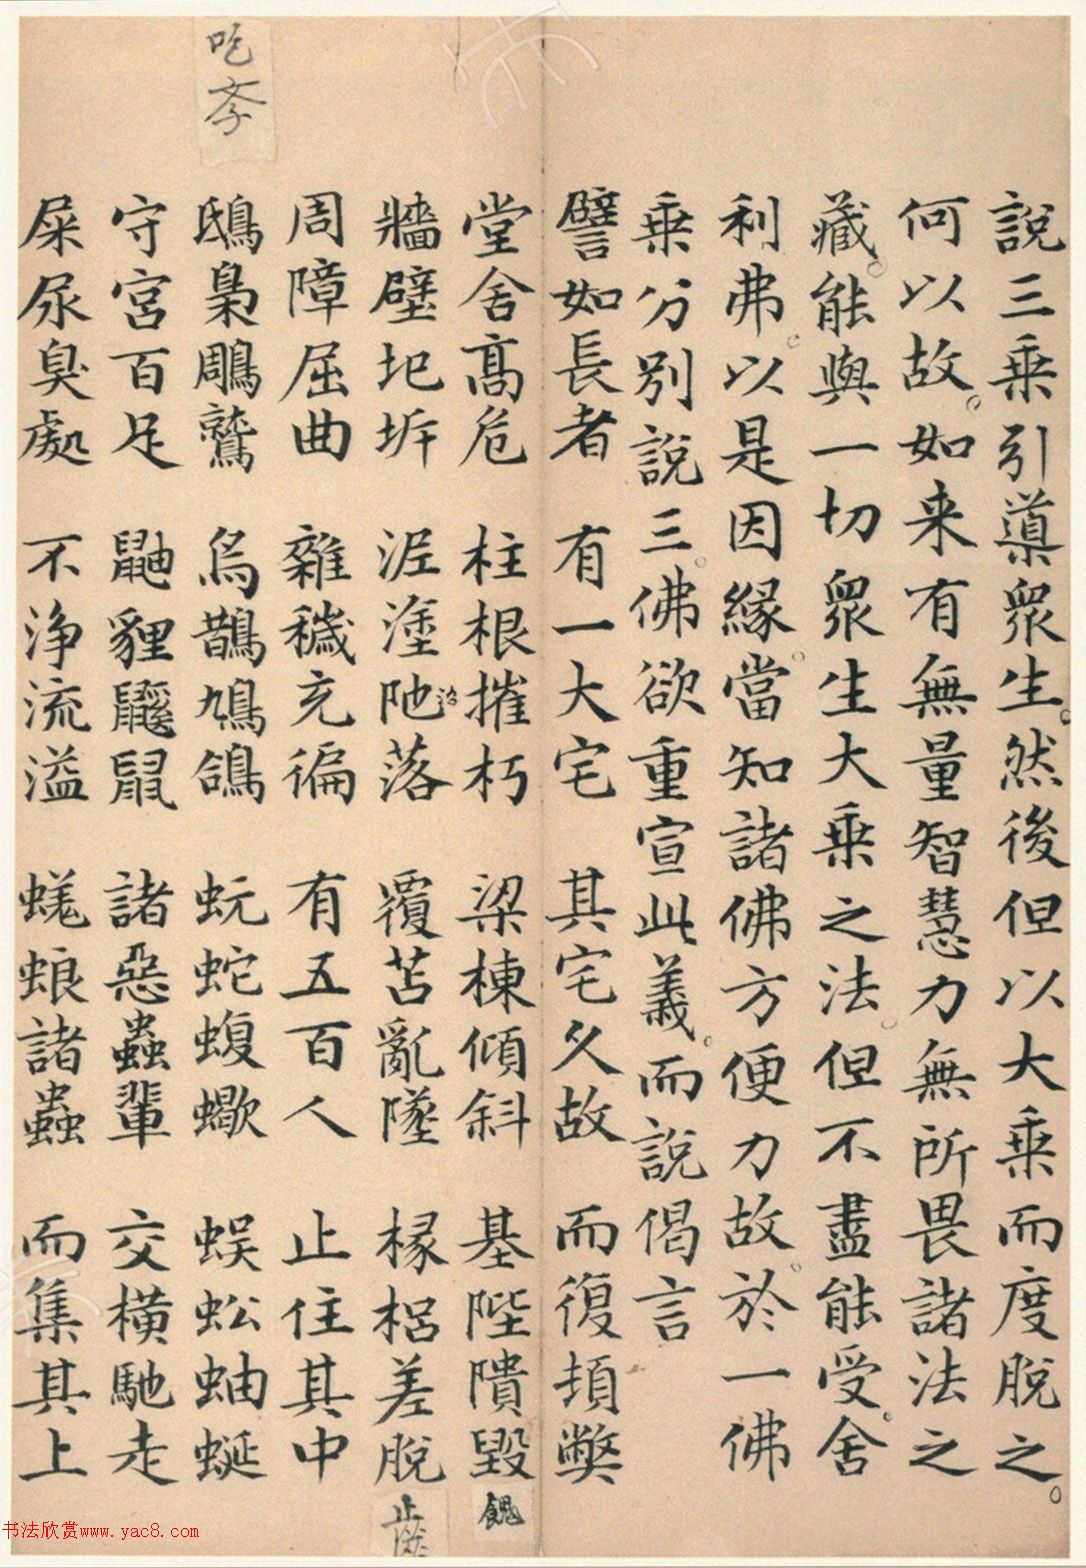 說三乗引導衆生然後但以大乗而度脫之
何以故如来有無量智慧力無所畏諸法之
藏能與一切衆生大乗之法但不盡能受舍
利弗以是因緣當知諸佛方便力故於一佛
乗分別說三佛欲重宣此義而說偈言
譬如長者 有一大宅 其宅久故 而復頓弊
堂舍高危 柱根摧朽 梁棟傾斜 基陛隤毀
牆壁圯坼 泥塗陁落 覆苫亂墜 椽梠差脫
周障屈曲 雜穢充徧 有五百人 止住其中
鴟梟鵰鷲 烏鵲鳩鴿 蚖蛇蝮蠍 蜈蚣蚰蜒
守宮百足 鼬貍鼷鼠 諸惡蟲輩 交橫馳走
屎尿臭處 不淨流溢 蜣蜋諸蟲 而集其上
书法欣赏www.yac8.com